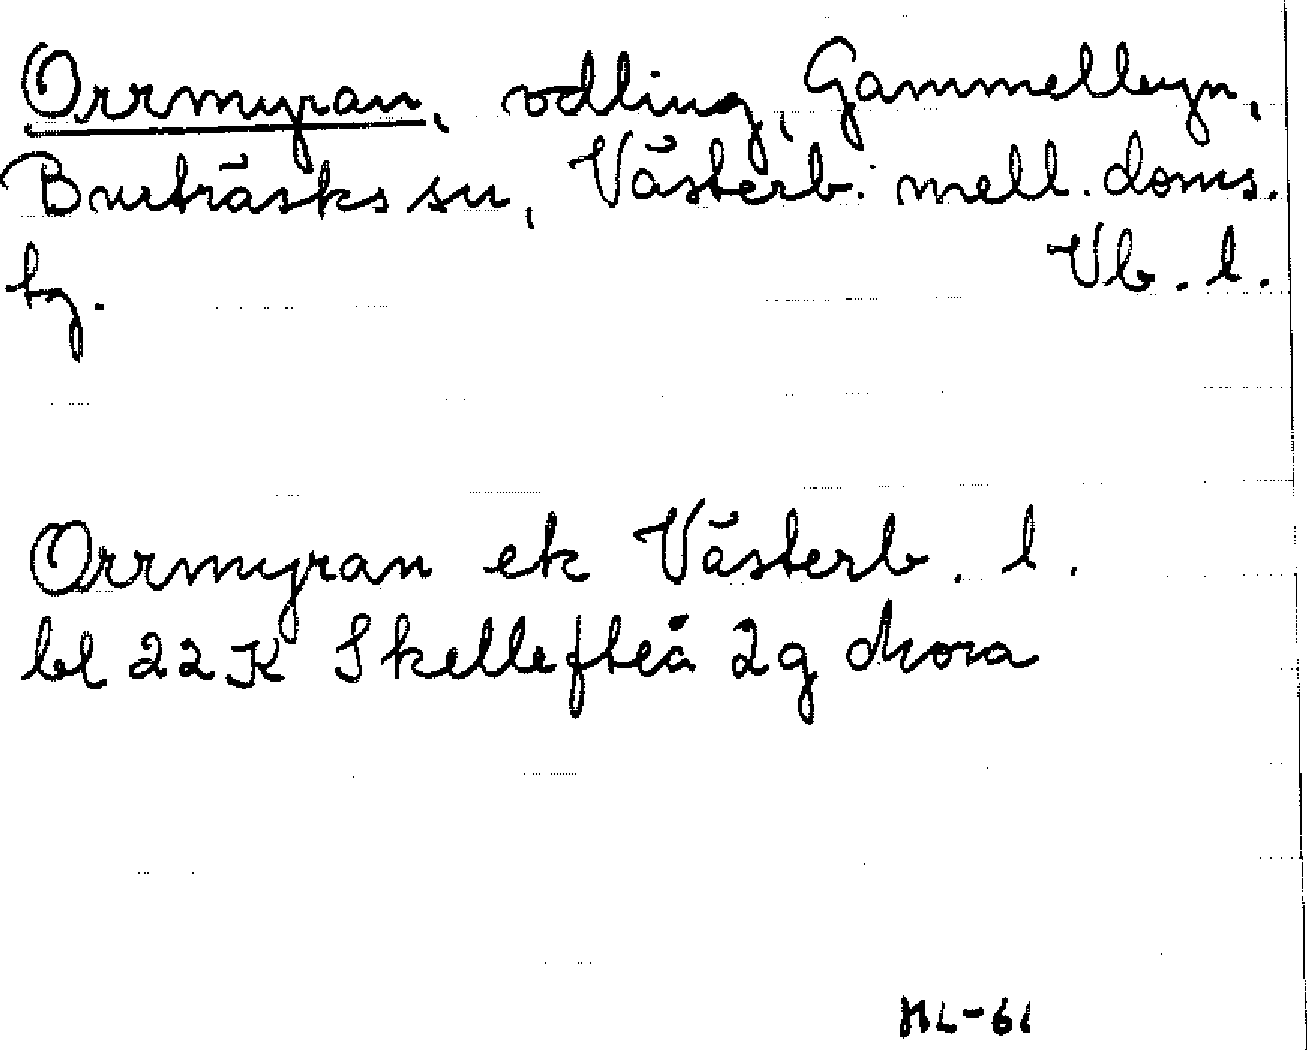 Orrmyran, odling, Gammelbyn,
Burträsks sn, Västerb. mell. doms.
tg. Vb. l.
Orrmyran ek Västerb. l.
bl 22K Skellefteå 2g
ML-61